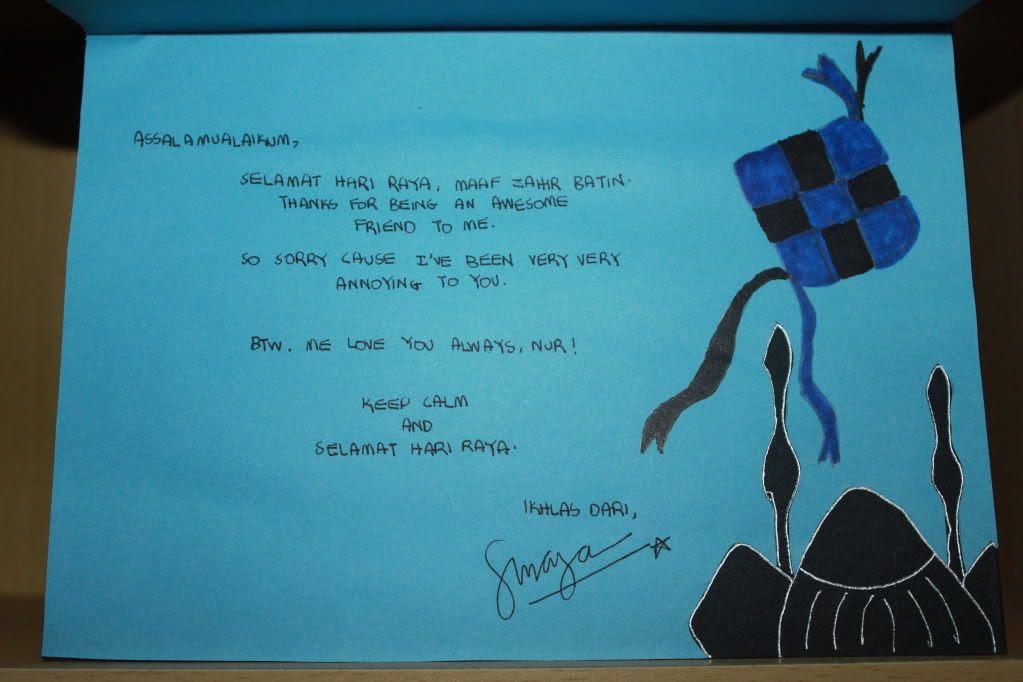 ASSALAMUALAIKUM,
SELAMAT HARI RAYA, MAAF ZAHIR BATIN.
THANKS FOR BEING AN AWESOME
FRIEND TO ME.
SO SORRY CAUSE I'VE BEEN VERY VERY
ANNOYING TO YOU.
BTW. ME LOVE YOU ALWAYS, NUR!
KEEP CALM
AND
SELAMAT HARI RAYA.
IKHLAS DARI,